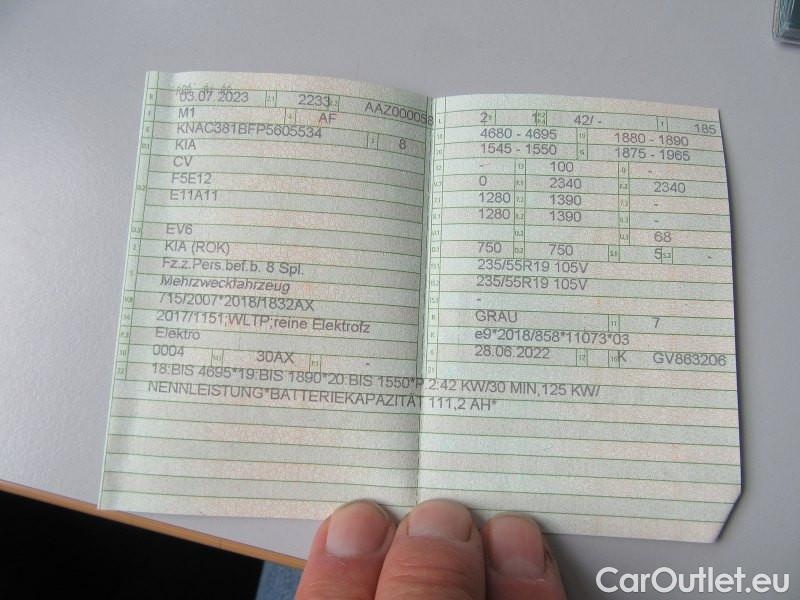 03.07.2023 2233 AAZ000058
M1 AF
KNAC381BFP5605534 8
KIA
CV
F5E12
E11A11
EV6
KIA (ROK)
Fz.z.Pers.bef.b. 8 Spl.
Mehrzweckfahrzeug
715/2007*2018/1832AX
2017/1151;WLTP;reine Elektrofz
Elektro
0004 30AX -
2 1 42/ - 185
4680 - 4695 1880 - 1890
1545 - 1550 1875 - 1965
- 100 -
0 2340 2340
1280 1390 -
1280 1390 -
68
750 750 5 -
235/55R19 105V
235/55R19 105V
-
GRAU 7
e9*2018/858*11073*03
28.06.2022 K GV863206
18:BIS 4695*19:BIS 1890*20:BIS 1550*P.2:42 KW/30 MIN,125 KW/
NENNLEISTUNG*BATTERIEKAPAZITÄT 111,2 AH*
CarOutlet.eu